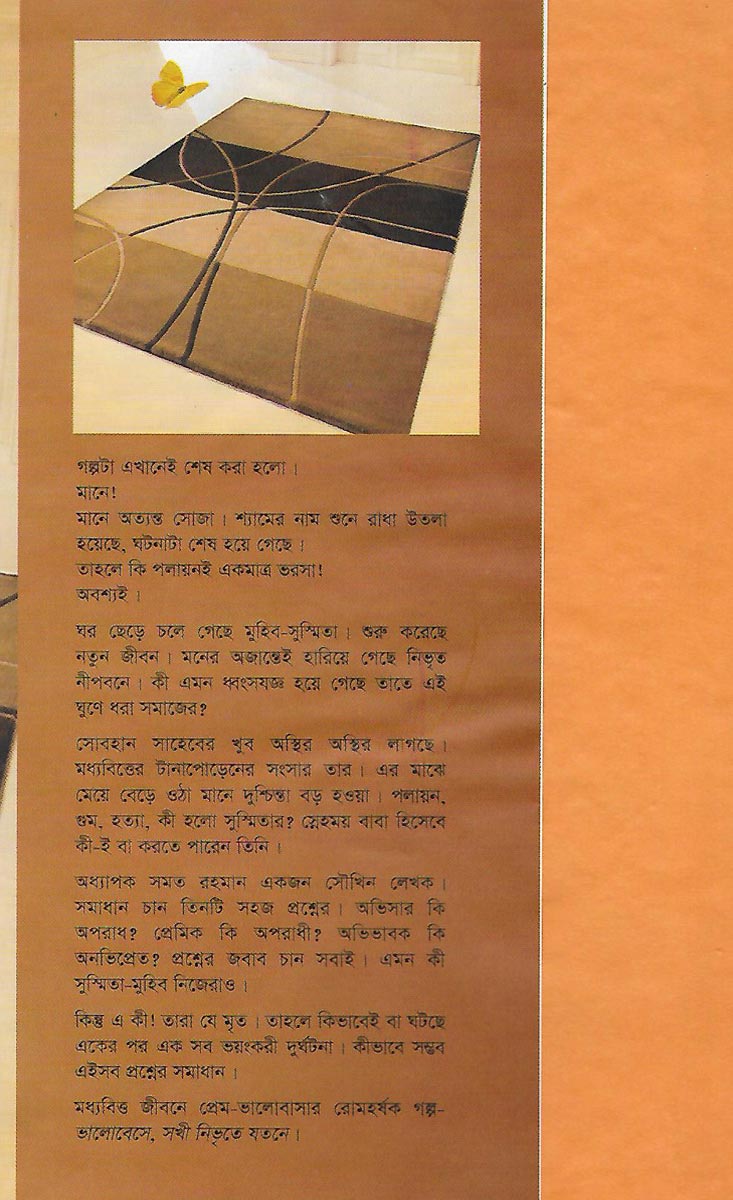 গল্পটা এখানেই শেষ করা হলো।
মানে!
মানে অত্যন্ত সোজা। শ্যামের নাম শুনে রাধা উতলা
হয়েছে, ঘটনাটা শেষ হয়ে গেছে।
তাহলে কি পলায়নই একমাত্র ভরসা!
অবশ্যই।
ঘর ছেড়ে চলে গেছে মুহিব-সুস্মিতা। শুরু করেছে
নতুন জীবন। মনের অজান্তেই হারিয়ে গেছে নিভৃত
নীপবনে। কী এমন ধ্বংসযজ্ঞ হয়ে গেছে তাতে এই
ঘুণে ধরা সমাজের?
সোবহান সাহেবের খুব অস্থির অস্থির লাগছে।
মধ্যবিত্তের টানাপোড়েনের সংসার তার। এর মাঝে
মেয়ে বেড়ে ওঠা মানে দুশ্চিন্তা বড় হওয়া। পলায়ন,
গুম, হত্যা, কী হলো সুস্মিতার? স্নেহময় বাবা হিসেবে
কী-ই বা করতে পারেন তিনি।
অধ্যাপক সমত রহমান একজন সৌখিন লেখক।
সমাধান চান তিনটি সহজ প্রশ্নের। অভিসার কি
অপরাধ? প্রেমিক কি অপরাধী? অভিভাবক কি
অনভিপ্রেত? প্রশ্নের জবাব চান সবাই। এমন কী
সুস্মিতা-মুহিব নিজেরাও।
কিন্তু এ কী! তারা যে মৃত। তাহলে কিভাবেই বা ঘটছে
একের পর এক সব ভয়ংকরী দুর্ঘটনা। কীভাবে সম্ভব
এইসব প্রশ্নের সমাধান।
মধ্যবিত্ত জীবনে প্রেম-ভালোবাসার রোমহর্ষক গল্প-
ভালোবেসে, সখী নিভৃতে যতনে।